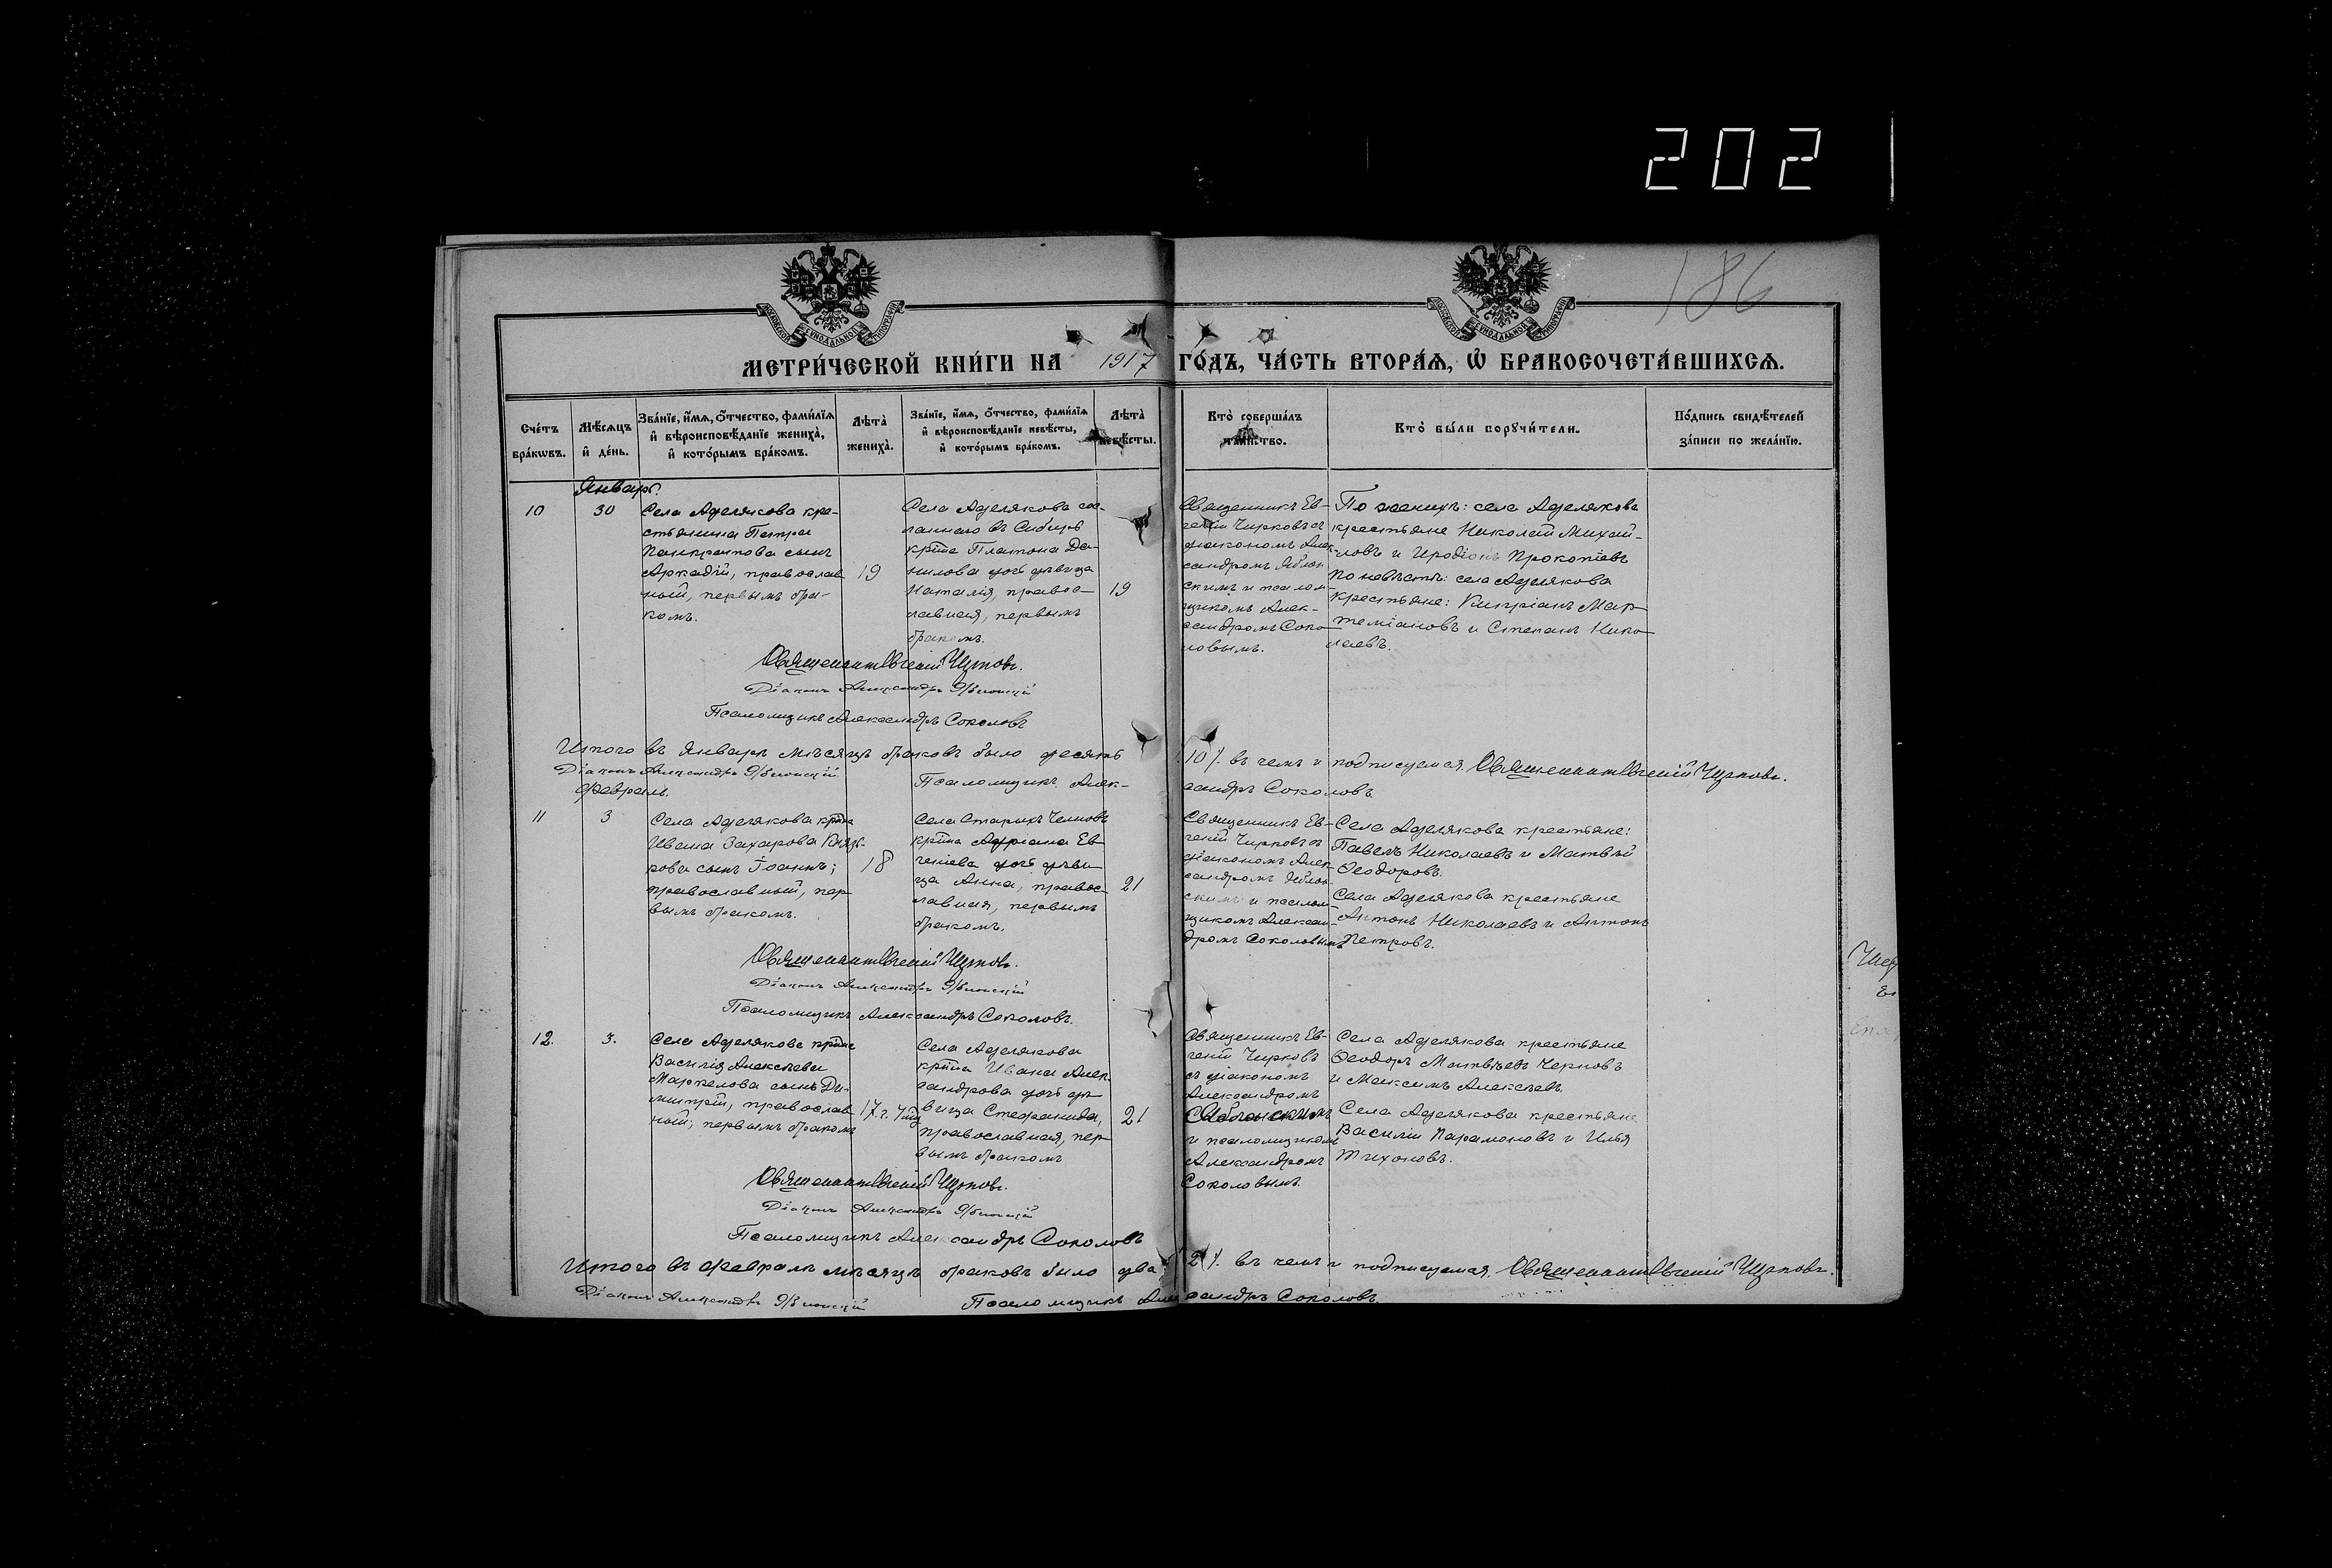 202
186
МОСКОВСКОЙ СѴНОДАЛЬНОЙ ТИПОГРАФІИ
МОСКОВСКОЙ СѴНОДАЛЬНОЙ ТИПОГРАФІИ
МЕТРИ́ЧЕСКОЙ КНИ́ГИ НА 1917 ГО́ДЪ, ЧА́СТЬ ВТОРА́Ѧ, Ѡ҆ БРАКОСОЧЕТА́ВШИХСѦ.
Сче́тъ бра́кѡвъ.
Мѣ́сѧцъ и҆ де́нь.
Зва́нїе, и҆́мѧ, ѻ҆́тчество, фами́лїѧ и҆ вѣроисповѣ́данїе жениха̀, и҆ кото́рымъ бра́комъ.
Лѣта̀ жениха̀.
Зва́нїе, и҆́мѧ, ѻ҆́тчество, фами́лїѧ и҆ вѣроисповѣ́данїе невѣ́сты, и҆ кото́рымъ бра́комъ.
Лѣта̀ невѣ́сты.
Кто̀ соверша́лъ таи́нство.
Кто̀ бы́ли порꙋчи́тели.
По́дпись свидѣ́телей за́писи по жела́нїю.
Январь.
10
30
Села Аделякова кре-
стьянина Петра
Панкратова сынъ
Аркадій, православ
ный, первымъ бра-
комъ.
19
Села Аделякова сос-
ланнаго въ Сибирь
кр-на Платона Да-
нилова дочь дѣвица
Наталія, правос-
лавная, первымъ
бракомъ.
19
Священникъ Ев-
геній Чирковъ съ
діакономъ Алек-
сандромъ Яблон
скимъ и псалом
щикомъ Алек-
сандромъ Соко-
ловымъ.
По женихѣ: села Аделякова
крестьяне Николай Михай-
ловъ и Иродіонъ Прокопіевъ
По невѣстѣ: села Аделякова
крестьяне: Кипріанъ Мар-
теміановъ и Степанъ Нико-
лаевъ.
Священникъ Евгеній Чирковъ.
Діаконъ Александръ Яблонскій
Псаломщикъ Александръ Соколовъ
Итого въ Январѣ мѣсяцѣ браковъ было десять /10/. въ чемъ и подписуемся. Священникъ Евгеній Чирковъ.
Діаконъ Александръ Яблонскій Псаломщикъ Алек-
сандръ Соколовъ.
Февраль.
11
3
Села Аделякова кр-на
Ивана Захарова
сынъ Іоаннъ;
православный, пер-
вымъ бракомъ.
18
Села Старыхъ Челновъ
кр-на Адріана Ев-
геніева дочь дѣви-
ца Анна, правос-
лавная, первымъ
бракомъ.
21
Священникъ Ев-
геній Чирковъ съ
діакономъ Алек
сандромъ Яблон-
скимъ и псалом-
щикомъ Алексан-
дромъ Соколовымъ
Села Аделякова крестьяне:
Павелъ Николаевъ и Матвѣй
Ѳеодоровъ.
Села Аделякова крестьяне
Антонъ Николаевъ и Антонъ
Петровъ.
Священникъ Евгеній Чирковъ.
Діаконъ Александръ Яблонскій
Псаломщикъ Александръ Соколовъ.
12.
3.
Села Аделякова кр-на
Василія Алексѣева
Маркелова сынъ Ди-
митрій, православ
ный, первымъ бракомъ
17 г.
Села Аделякова
кр-на Ивана Алек-
сандрова дочь дѣ-
вица Стефанида,
православная, пер-
вымъ бракомъ
21
Священникъ Ев-
геній Чирковъ
съ діакономъ
Александромъ
Яблонскимъ
и псаломщикомъ
Александромъ
Соколовымъ.
Села Аделякова крестьяне
Ѳеодоръ Матвѣевъ Черновъ
и Максимъ Алексѣевъ.
Села Аделякова крестьяне
Василій Парамоновъ и Илья
Тихоновъ.
Священникъ Евгеній Чирковъ.
Діаконъ Александръ Яблонскій
Псаломщикъ Александръ Соколовъ
Итого въ февралѣ мѣсяцѣ браковъ было два /2/. въ чемъ и подписуемся. Священникъ Евгеній Чирковъ.
Діаконъ Александръ Яблонскій Псаломщикъ Александръ Соколовъ.